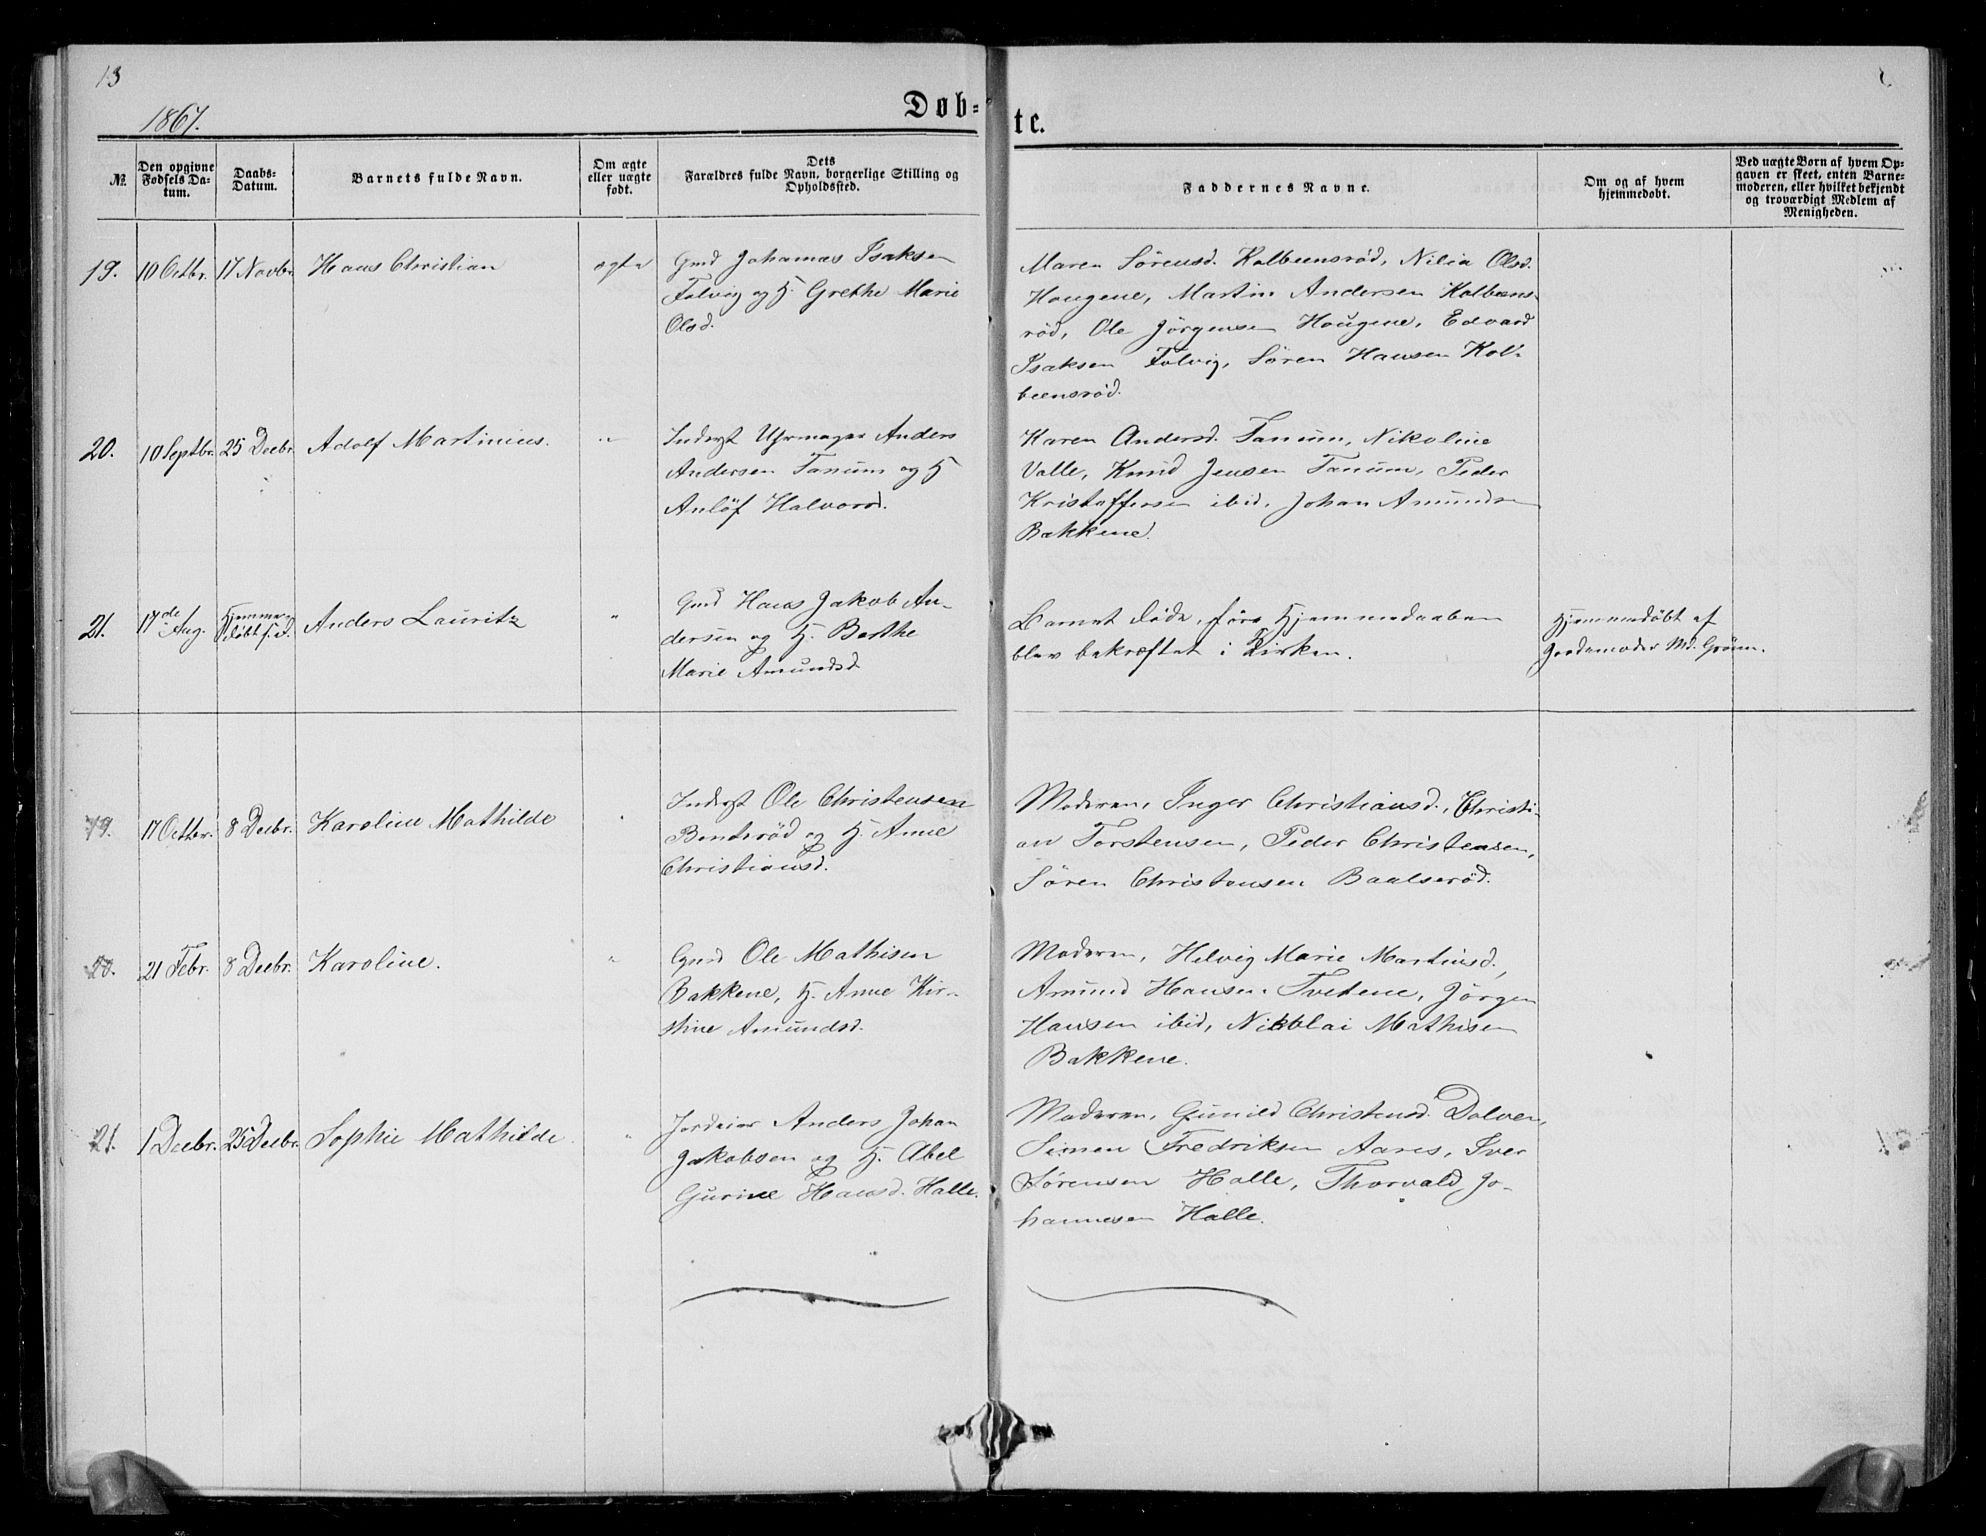 13
1867.
Døb-
te.
№
Den opgivne
Fødsels Da-
tum.
Daabs-
Datum.
Barnets fulde Navn.
Om ægte
eller uægte
født.
Dets
Forældres fulde Navn, borgerlige Stilling og
Opholdssted.
Faddernes Navne.
Om og af hvem
hjemmedøbt.
Ved uægte Børn af hvem Op-
gaven er skeet, enten Barne-
moderen, eller hvilket bekjendt
og troværdigt Medlem af
Menigheden.
19. 10 Octbr. 17 Novbr Hans Christian ægte
Gmd Johannes Isaksen
Folvig og H. Grethe Marie
Olsd.
Maren Sørensd. Kolbeensrød, Nilia Olsd.
Hougene, Martin Andersen Kolbeens-
rød, Ole Jørgensen Hougene, Edvard
Isaksen Folvig, Søren Hansen Kol-
beensrød.
20. 10 Septbr. 25 Decbr. Adolf Martinius. "
Inderst Uhrmager Anders
Andersen Tanum og H
Anlöf Halvorsd.
Karen Andersd. Tanum, Nikoline
Valle, Knud Jensen Tanum, Peder
Kristoffersen ibid, Johan Amundsen
Bakkene.
21. 17de Aug. Hjemme-
døbt s.D. Anders Lauritz "
Gmd Hans Jakob An-
dersen og H. Berthe
Marie Amundsd.
Barnet døde, före Hjemmedaaben
blev bekræftet i Kirken.
Hjemmedøbt af
Jordemoder Md. Grönn.
19. 17 Octbr. 8 Decbr. Karoline Mathilde "
Inderst Ole Christensen
Bentsrød og H. Anne
Christiansd.
Moderen, Inger Christiansd., Christi-
an Torstensen, Peder Christensen,
Søren Christensen Baalserød.
20. 21 Febr. 8 Decbr. Karoline. "
Gmd Ole Mathisen
Bakkene, H. Anne Kir-
stine Amundsd.
Moderen, Helvig Marie Martinsd.,
Amund Hansen Tvetene, Jørgen
Hansen ibid, Nikolai Mathisen
Bakkene.
21. 1 Decbr. 25 Decbr. Sophie Mathilde "
Jordeier Anders Johan
Jakobsen og H. Abel
Gurine Hansd. Halle.
Moderen, Gunild Christensd. Dolven,
Simen Fredriksen Aares, Iver
Sørensen Halle, Thorvald Jo-
hannesen Halle.